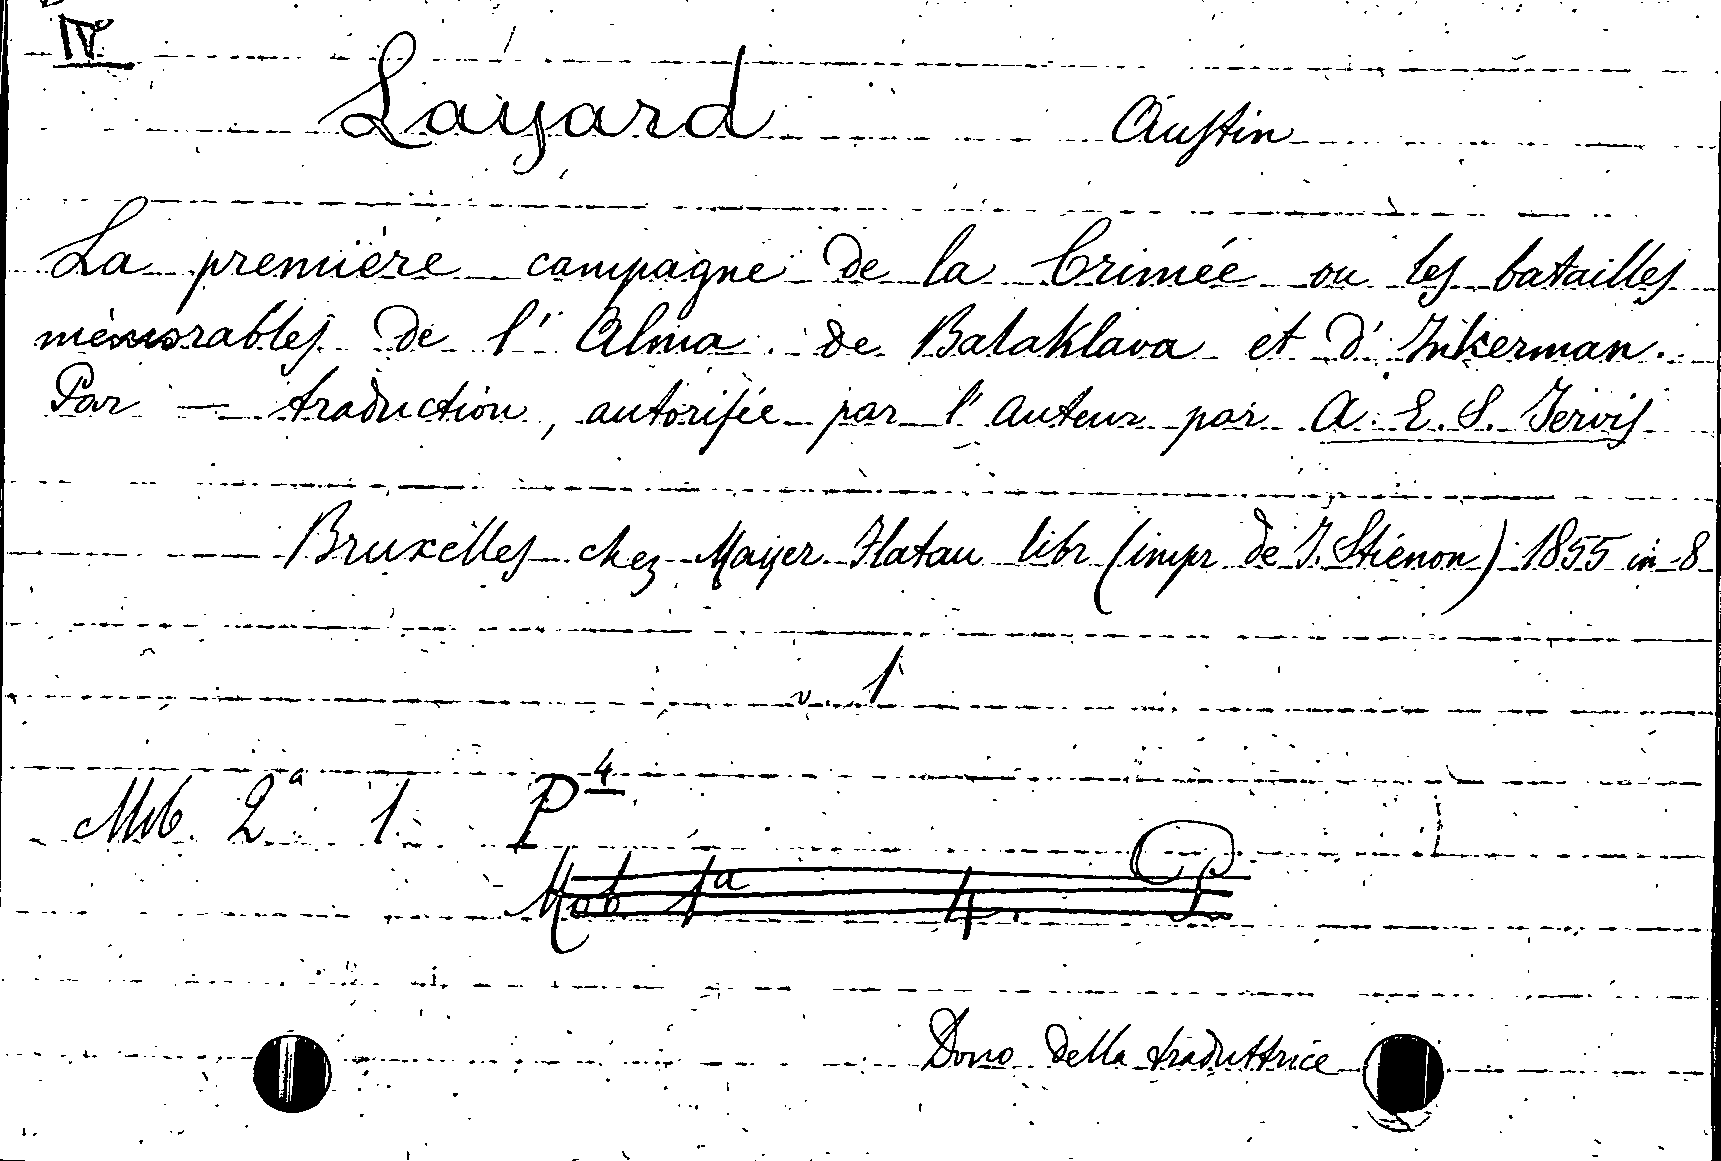 IV
Layard Austin
La première campagne de la Crimée ou les batailles
mémorables de l'Alma de Balaklava et d'Inkerman.
Par — traduction, autorisée par l'auteur par A. E. S. Jervis
Bruxelles chez Mayer Flatau libr (impr de J. Stiénon) 1855 in-8
v. 1
Mob. 2a 1. P4
Mob. 1a 4.
Dono della traduttrice